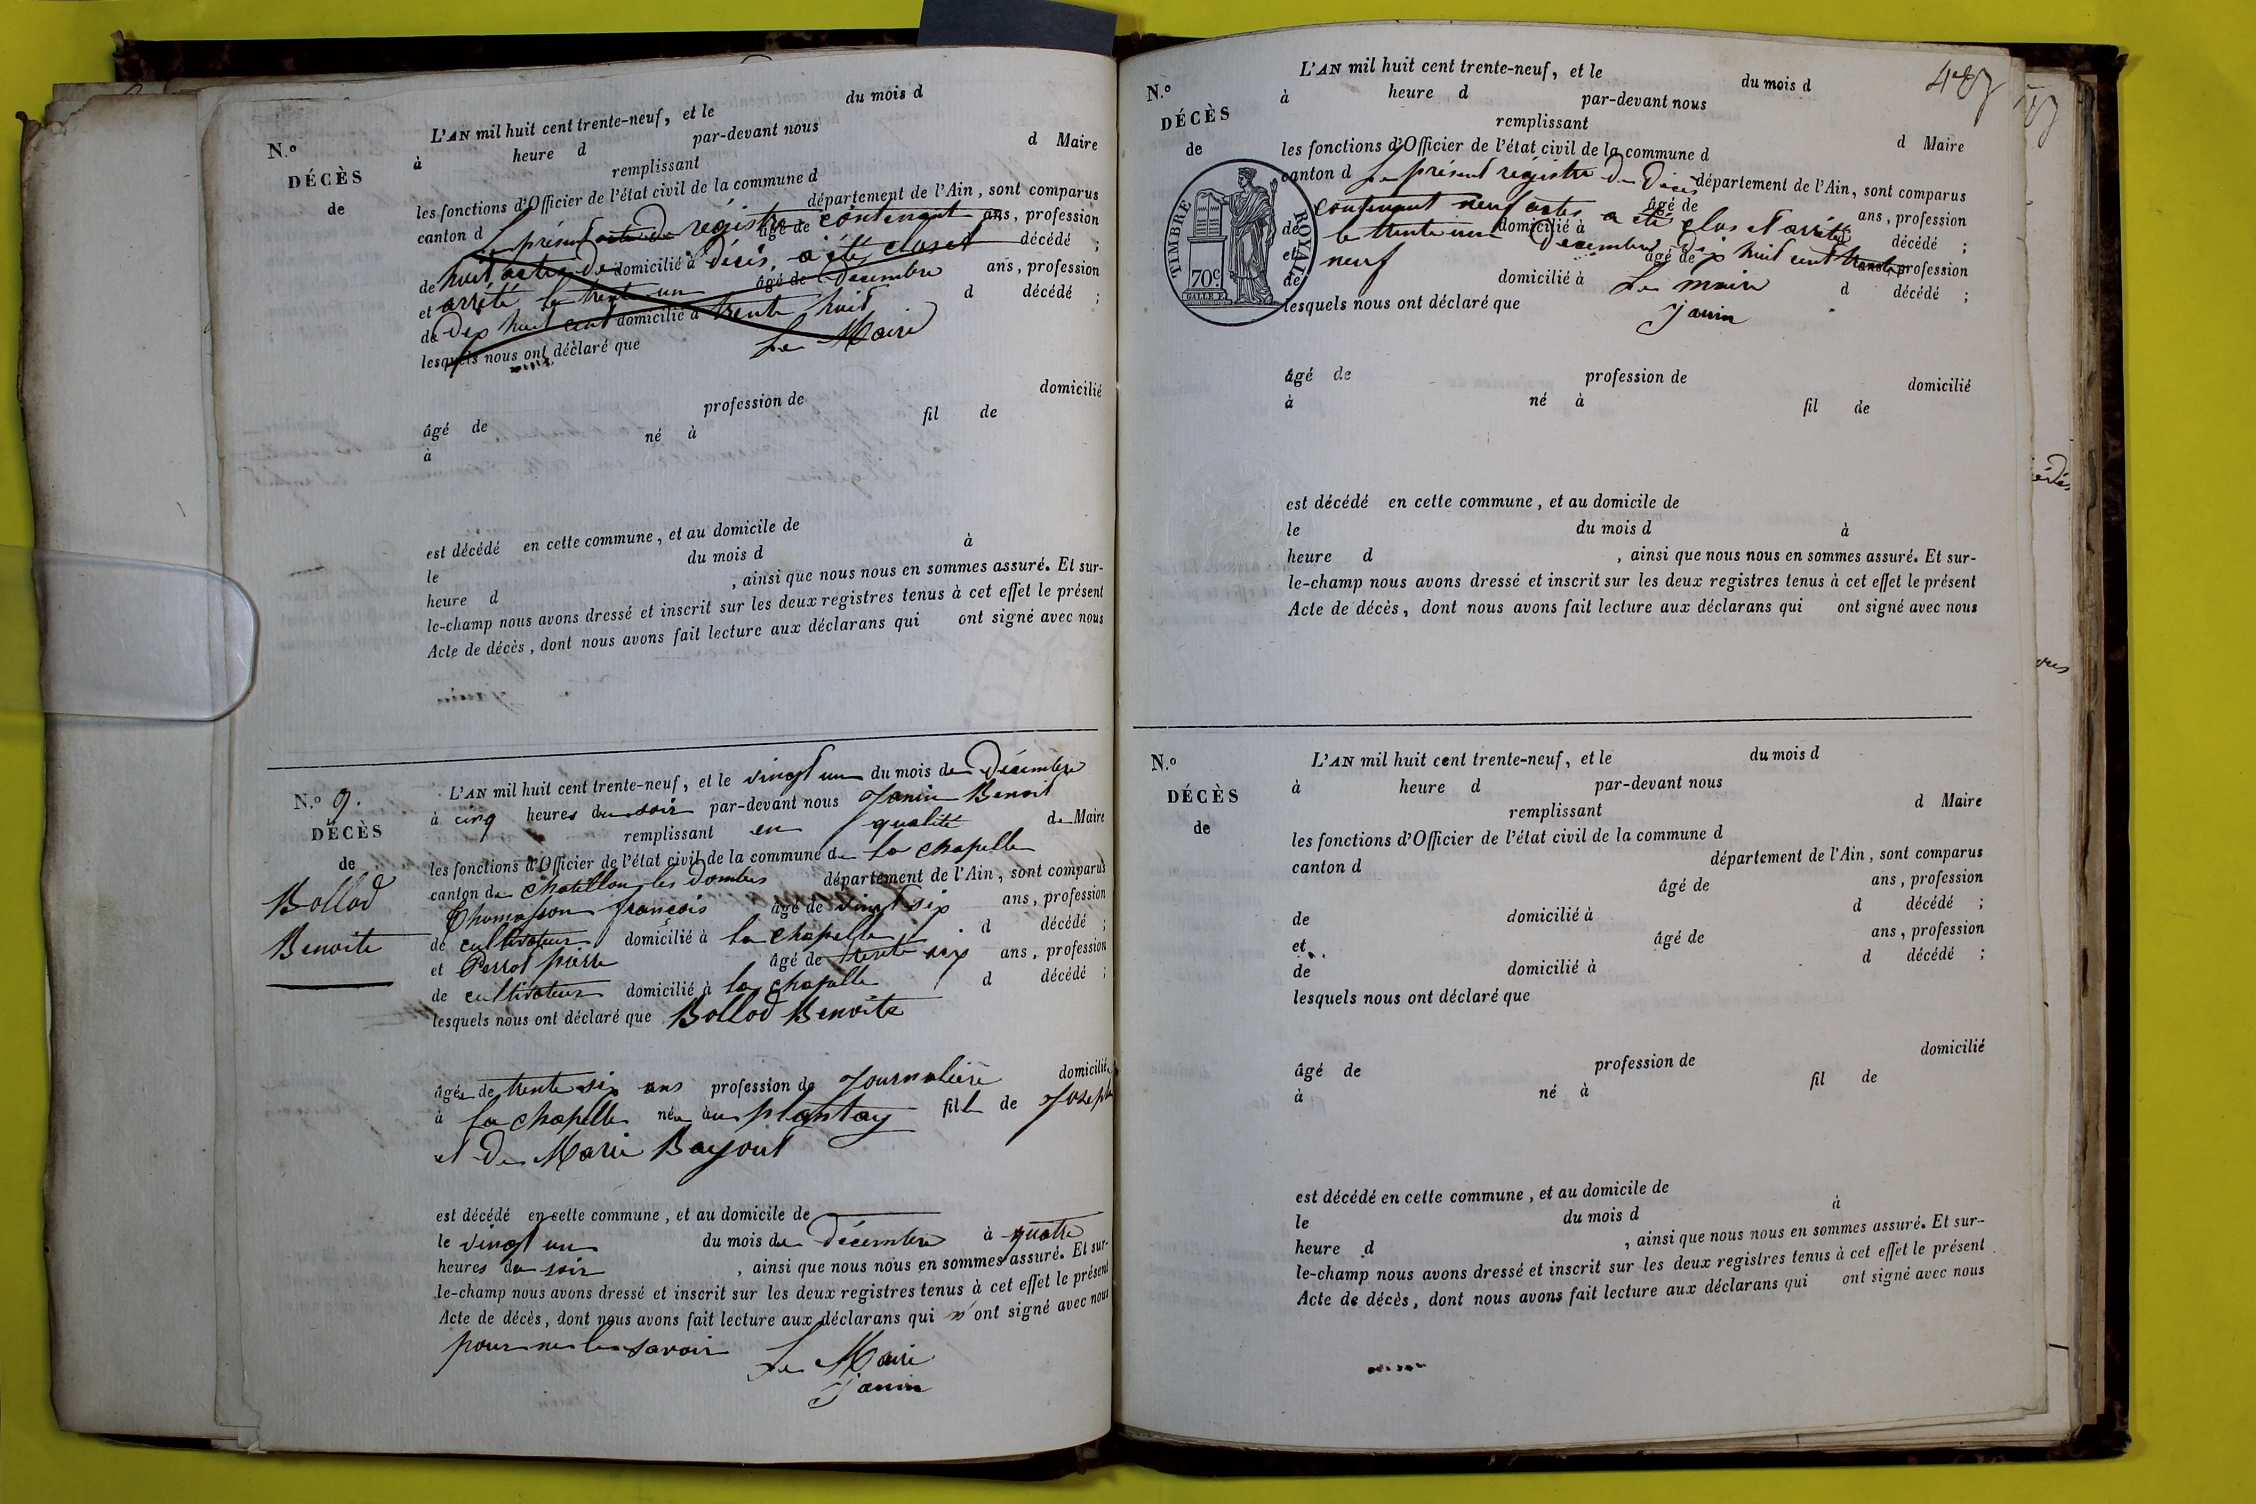 N.o
DÉCÈS
de
L'AN mil huit cent trente-neuf, et le du mois d
à heure d par-devant nous
remplissant d Maire
les fonctions d'Officier de l'état civil de la commune d
canton d département de l'Ain, sont comparus
Le présent acte de régistre contenant âgé de ans, profession
de huit actes de domicilié à décès, a été clos et décédé ;
et arrêté le trente un âgé de decembre ans, profession
de dix huit cent domicilié à trente huit d décédé ;
lesquels nous ont déclaré que Le Maire
âgé de profession de domicilié
à né à fil de
est décédé en cette commune, et au domicile de
le du mois d à
heure d , ainsi que nous nous en sommes assuré. Et sur-
le-champ nous avons dressé et inscrit sur les deux registres tenus à cet effet le présent
Acte de décès, dont nous avons fait lecture aux déclarans qui ont signé avec nous
N.o 9.
DÉCÈS
de
Bollod
Benoite
L'AN mil huit cent trente-neuf, et le vingt un du mois de Décembre
à cinq heures du soir par-devant nous Janin Benoit
remplissant en qualité de Maire
les fonctions d'Officier de l'état civil de la commune de la chapelle
canton de chatillon les dombes département de l'Ain, sont comparus
Thomasson françois âgé de vingt six ans, profession
de cultivateur domicilié à la chapelle d décédé ;
et Perrot pierre âgé de trente six ans, profession
de cultivateur domicilié à la chapelle d décédé ;
lesquels nous ont déclaré que Bollod Benoite
âgée de trente six ans profession de Journalière domicilié
à la chapelle née au plantay fille de Joseph
et de Marie Bayout
est décédé en cette commune, et au domicile de
le vingt un du mois de décembre à quatre
heures du soir , ainsi que nous nous en sommes assuré. Et sur-
le-champ nous avons dressé et inscrit sur les deux registres tenus à cet effet le présent
Acte de décès, dont nous avons fait lecture aux déclarans qui n'ont signé avec nous
pour ne le savoir Le Maire
Janin
N.o
DÉCÈS
de
L'AN mil huit cent trente-neuf, et le du mois d
à heure d par-devant nous
remplissant d Maire
les fonctions d'Officier de l'état civil de la commune d
canton d Le présent régistre de Décès département de l'Ain, sont comparus
contenant neuf actes a été clos et arrêté âgé de ans, profession
de le trente un domicilié à Decembre dix huit cent trente décédé ;
et neuf âgé de profession
de domicilié à Le maire d décédé ;
lesquels nous ont déclaré que Janin
TIMBRE ROYAL
70c.
âgé de profession de domicilié
à né à fil de
est décédé en cette commune, et au domicile de
le du mois d à
heure d , ainsi que nous nous en sommes assuré. Et sur-
le-champ nous avons dressé et inscrit sur les deux registres tenus à cet effet le présent
Acte de décès, dont nous avons fait lecture aux déclarans qui ont signé avec nous
N.o
DÉCÈS
de
L'AN mil huit cent trente-neuf, et le du mois d
à heure d par-devant nous
remplissant d Maire
les fonctions d'Officier de l'état civil de la commune d
canton d département de l'Ain, sont comparus
âgé de ans, profession
de domicilié à d décédé ;
et âgé de ans, profession
de domicilié à d décédé ;
lesquels nous ont déclaré que
âgé de profession de domicilié
à né à fil de
est décédé en cette commune, et au domicile de
le du mois d à
heure d , ainsi que nous nous en sommes assuré. Et sur-
le-champ nous avons dressé et inscrit sur les deux registres tenus à cet effet le présent
Acte de décès, dont nous avons fait lecture aux déclarans qui ont signé avec nous